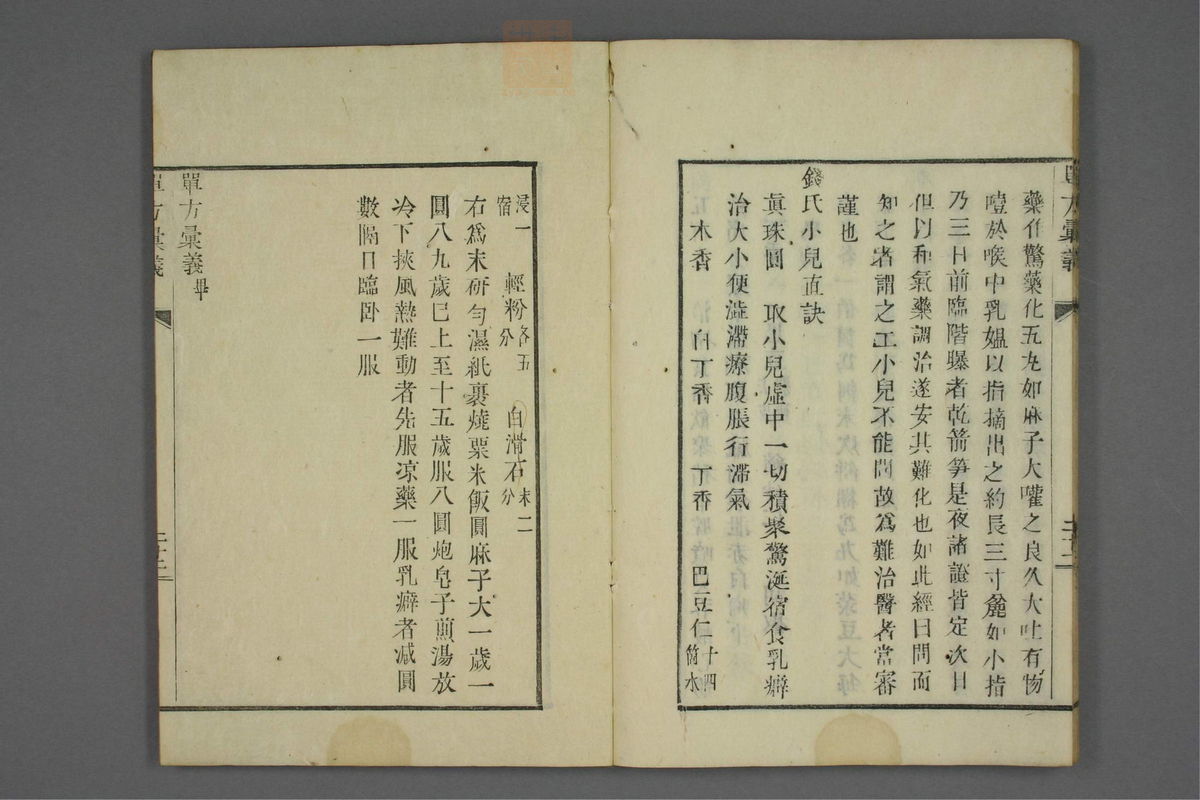 藥作驚藥化五丸如麻子大嚾之良久大吐有物
噎於喉中乳媪以指摘出之約長三寸麄如小指
乃三日前臨階曝者乾箭笋是夜諸證皆定次日
但以和氣藥調治遂安其難化也如此經曰問而
知之者謂之工小兒不能問故爲難治醫者當審
謹也
錢氏小兒直訣
眞珠圓 取小兒虛中一切積聚驚涎宿食乳癖
治大小便澁滯療腹脹行滯氣
木香 白丁香 丁香 巴豆仁十四箇水
浸一宿 輕粉各五分 白滑石末二分
右爲末研匀濕紙裹燒粟米飯圓麻子大一歲一
圓八九歲巳上至十五歲服八圓炮皂子煎湯放
冷下挾風熱難動者先服凉藥一服乳癖者减圓
數隔日臨卧一服
單方彙義畢
單方彙義